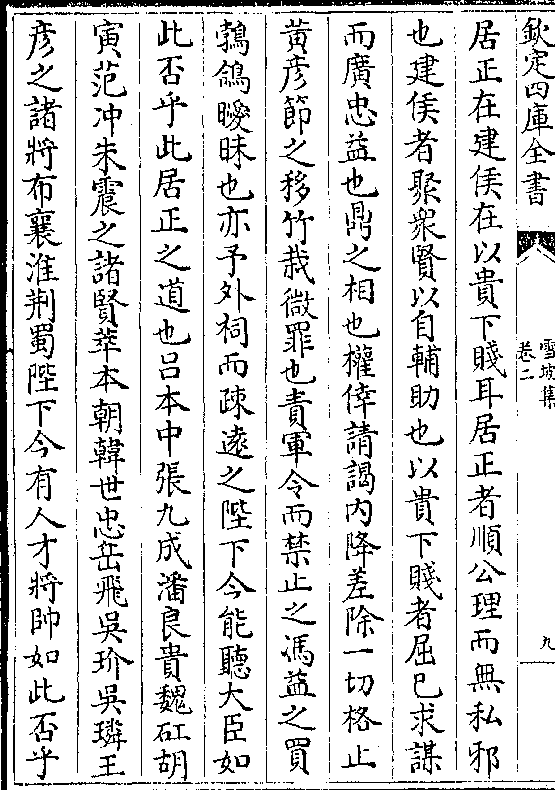 欽定四庫全書
雪坡集
卷二
九
居正在建侯在以貴下賤耳居正者順公理而無私邪
也建侯者聚衆賢以自輔助也以貴下賤者屈已求謀
而廣忠益也鼎之相也權倖請謁内降差除一切格止
黄彦節之移竹栽微罪也責軍令而禁止之馮益之買
鵓鴿曖昧也亦予外祠而疎逺之陛下今能聽大臣如
此否乎此居正之道也吕本中張九成潘良貴魏矼胡
寅范冲朱震之諸賢萃本朝韓世忠岳飛吳玠吳璘王
彦之諸將布襄淮荆蜀陛下今有人才將帥如此否乎